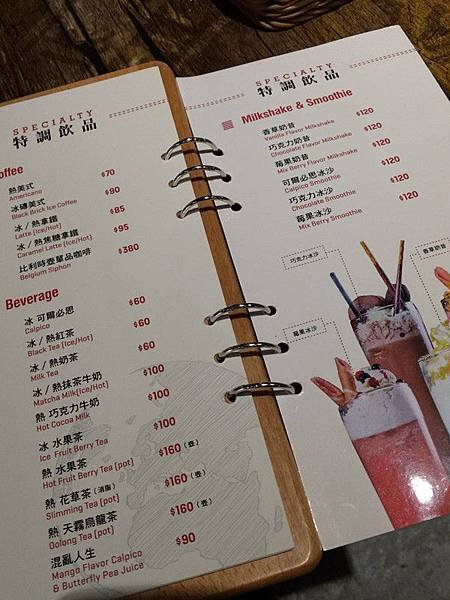 SPECIALTY
特調飲品
offee
熱美式 $70
Americano
冰磚美式 $90
Black Brick Ice Coffee
冰 / 熱拿鐵 $85
Latte (Ice/Hot)
冰 / 熱焦糖拿鐵 $95
Caramel Latte (Ice/Hot)
比利時壺單品咖啡 $380
Belgium Siphon
Beverage
冰 可爾必思 $60
Calpico
冰 / 熱紅茶 $60
Black Tea (Ice/Hot)
冰 / 熱奶茶 $60
Milk Tea
冰 / 熱抹茶牛奶 $100
Matcha Milk(Ice/Hot)
熱 巧克力牛奶 $100
Hot Cocoa Milk
冰 水果茶 $100
Ice Fruit Berry Tea
熱 水果茶 $160 (壺)
Hot Fruit Berry Tea (pot)
熱 花草茶 (消脂) $160 (壺)
Slimming Tea (pot)
熱 天霧烏龍茶 $160 (壺)
Oolong Tea (pot)
混亂人生 $90
Mango Flavor Calpico
& Butterfly Pea Juice
SPECIALTY
特調飲品
Milkshake & Smoothie
香草奶昔 $120
Vanilla Flavor Milkshake
巧克力奶昔 $120
Chocolate Flavor Milkshake
莓果奶昔 $120
Mix Berry Flavor Milkshake
可爾必思冰沙 $120
Calpico Smoothie
巧克力冰沙 $120
Chocolate Smoothie
莓果冰沙 $120
Mix Berry Smoothie
巧克力冰沙
香草奶昔
莓果冰沙